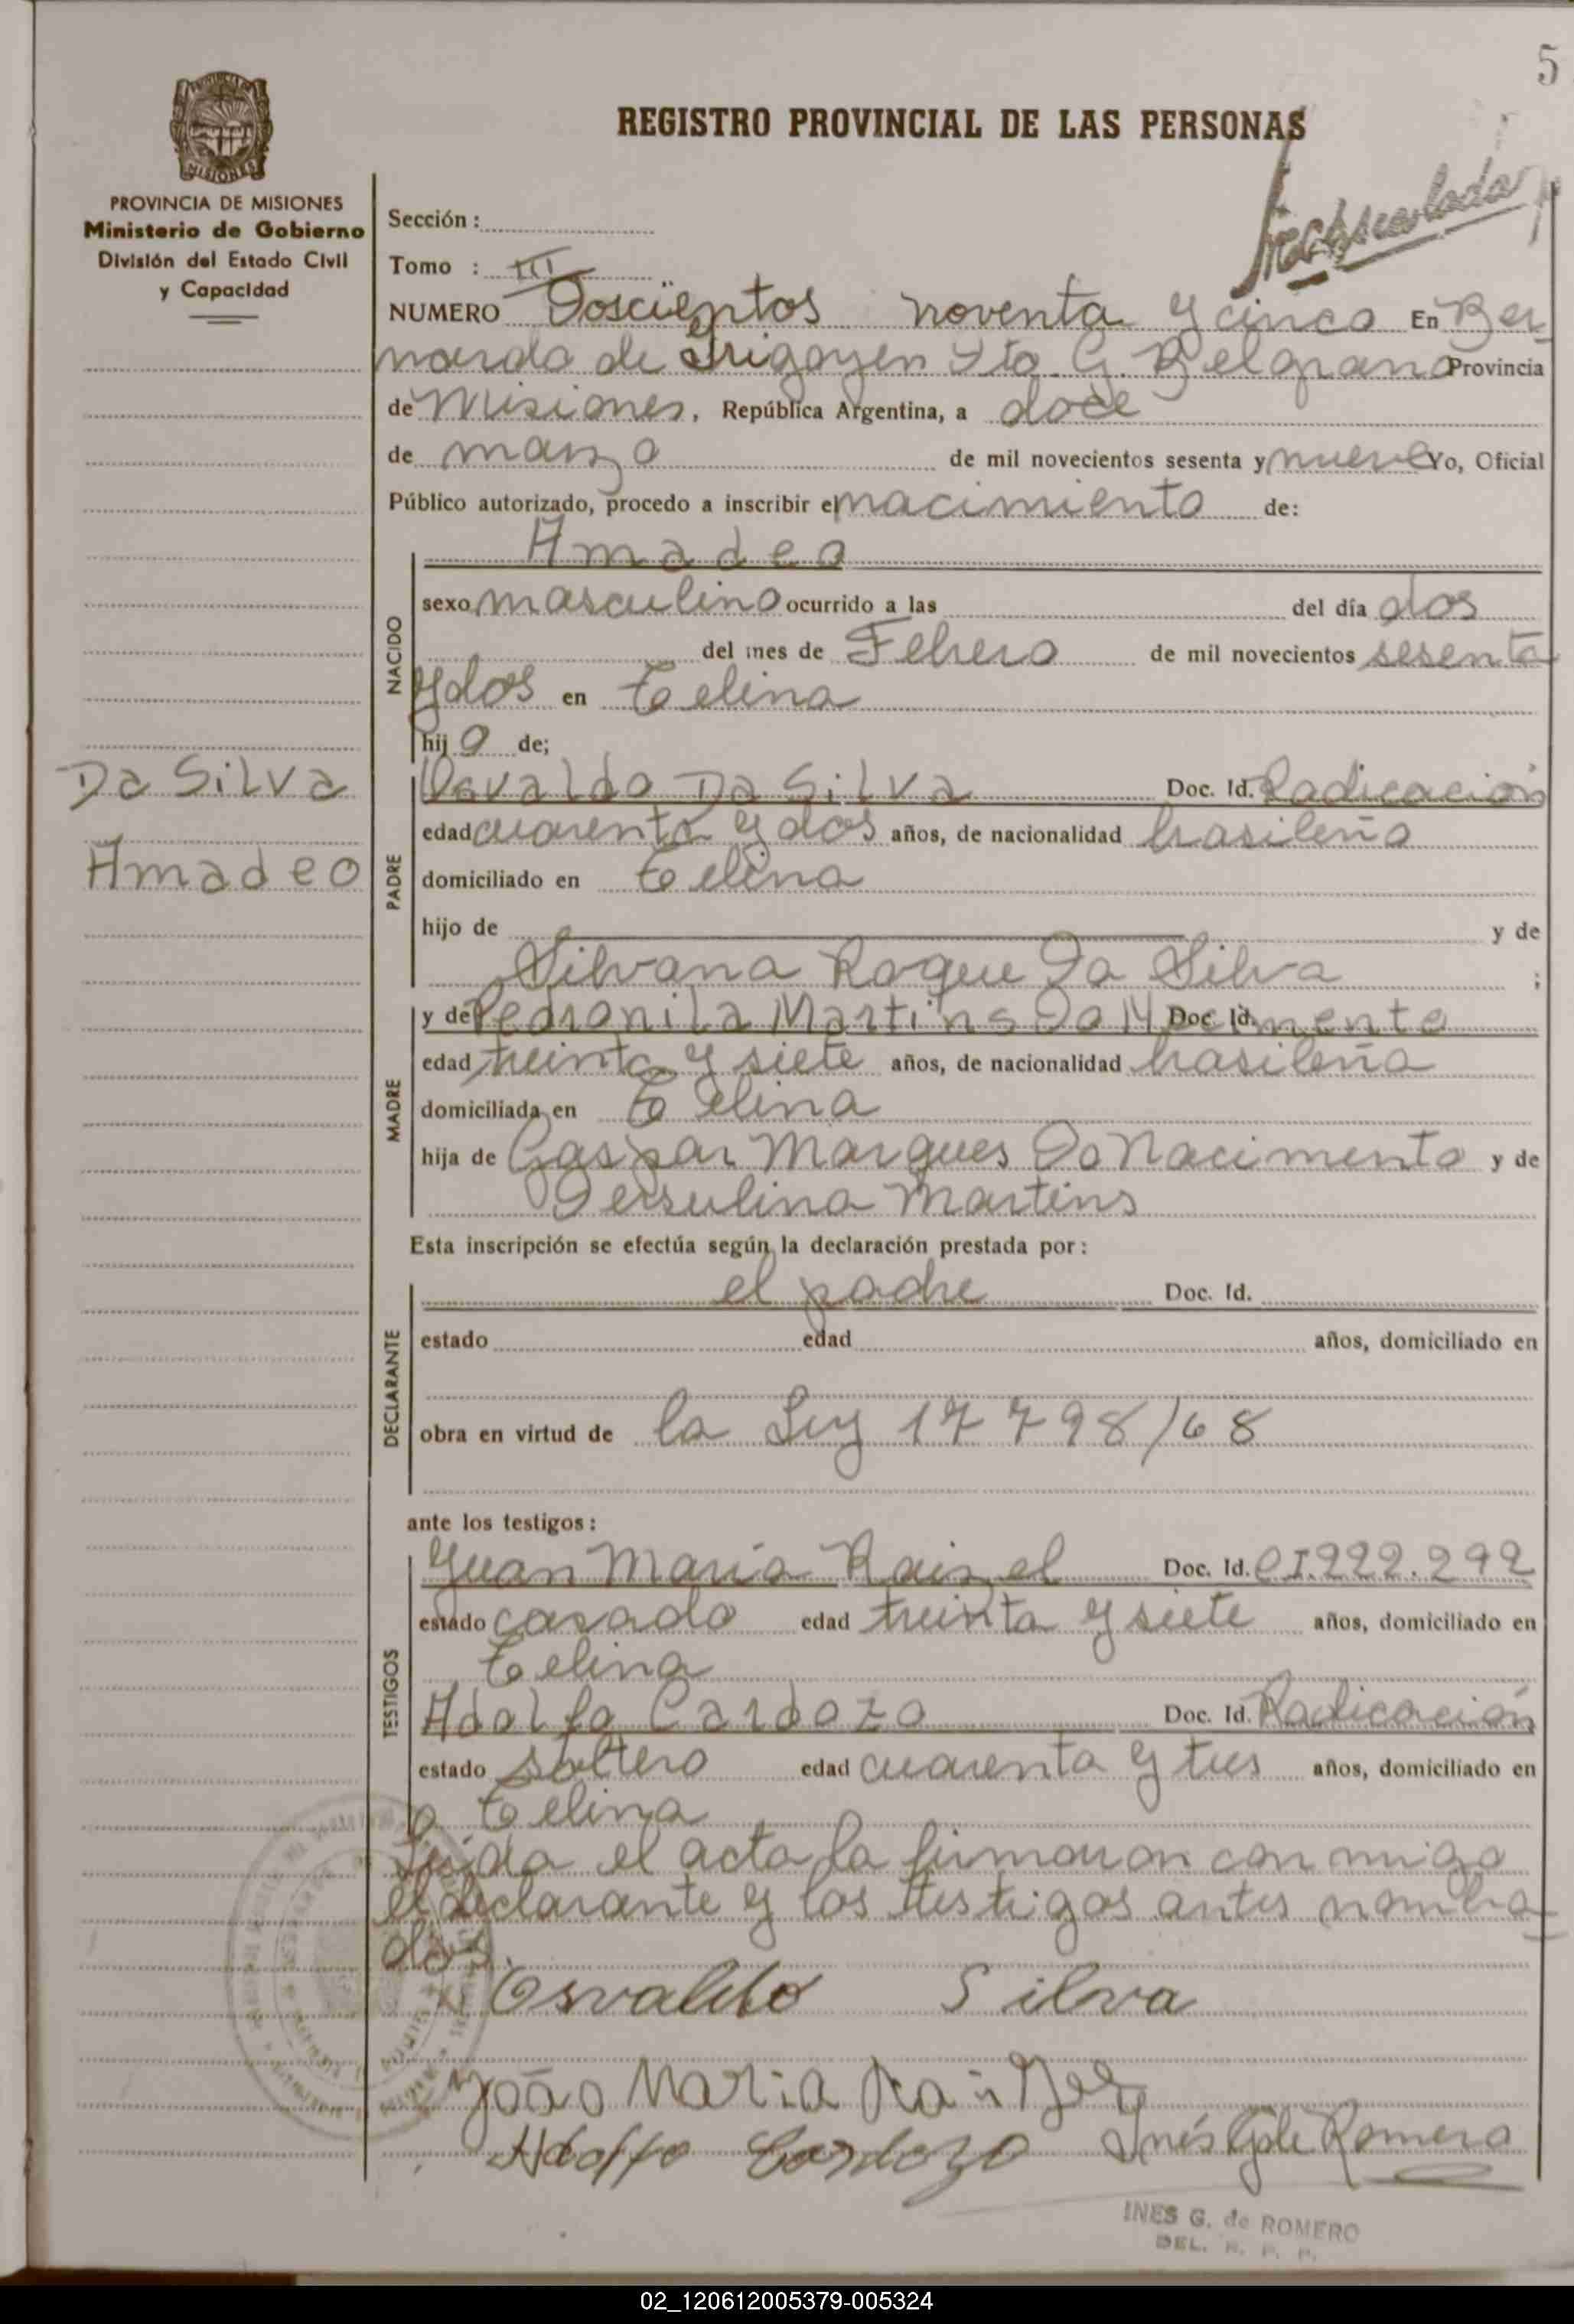 5
REGISTRO PROVINCIAL DE LAS PERSONAS
PROVINCIA DE MISIONES
MISIONES
PROVINCIA DE MISIONES
Ministerio de Gobierno
División del Estado Civil
y Capacidad
Sección :
Tomo : III
NUMERO Doscientos noventa y cinco En Ber
nardo de Irigoyen Dto. G. Belgrano Provincia
de Misiones, República Argentina, a doce
de marzo de mil novecientos sesenta y nueve Yo, Oficial
Público autorizado, procedo a inscribir el nacimiento de:
Amadeo
NACIDO
sexo masculino ocurrido a las del día dos
del mes de Febrero de mil novecientos sesenta
y dos en Celina
hijo de;
Da Silva
Amadeo
PADRE
Osvaldo Da Silva Doc. Id. Radicación
edad cuarenta y dos años, de nacionalidad brasileño
domiciliado en Celina
hijo de y de
Silvana Roque Da Silva ;
MADRE
y de Pedronila Martins Do Nacimento Doc. Id.
edad treinta y siete años, de nacionalidad brasileña
domiciliada en Celina
hija de Gaspar Marques Do Nacimento y de
Gersulina Martins
Esta inscripción se efectúa según la declaración prestada por :
DECLARANTE
el padre Doc. Id.
estado edad años, domiciliado en
obra en virtud de la Ley 17798/68
ante los testigos :
TESTIGOS
Juan María Raizel Doc. Id. CI.222.292
estado casado edad treinta y siete años, domiciliado en
Celina
Adolfo Cardozo Doc. Id. Radicación
estado soltero edad cuarenta y tres años, domiciliado en
Celina
Leída el acta la firmaron con migo
el declarante y los testigos antes nombra
dos.
Osvaldo Silva
João Maria
Adolfo Cardozo Inés G de Romero
INES G. de ROMERO
DEL. R. P. P.
02_120612005379-005324